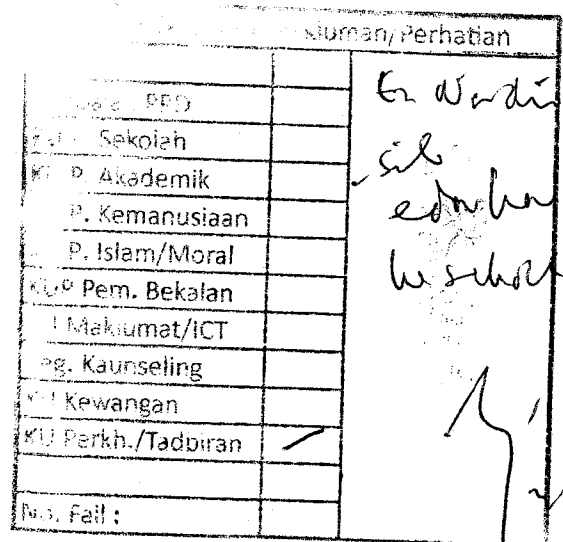 kluman/Perhatian
PPD
Sekolah
P. Akademik
P. Kemanusiaan
P. Islam/Moral
KUP Pem. Bekalan
Maklumat/ICT
Peg. Kaunseling
KU Kewangan
KU Perkh./Tadbiran
No. Fail :
En Nordin
sila
edarkan
ke sekolah